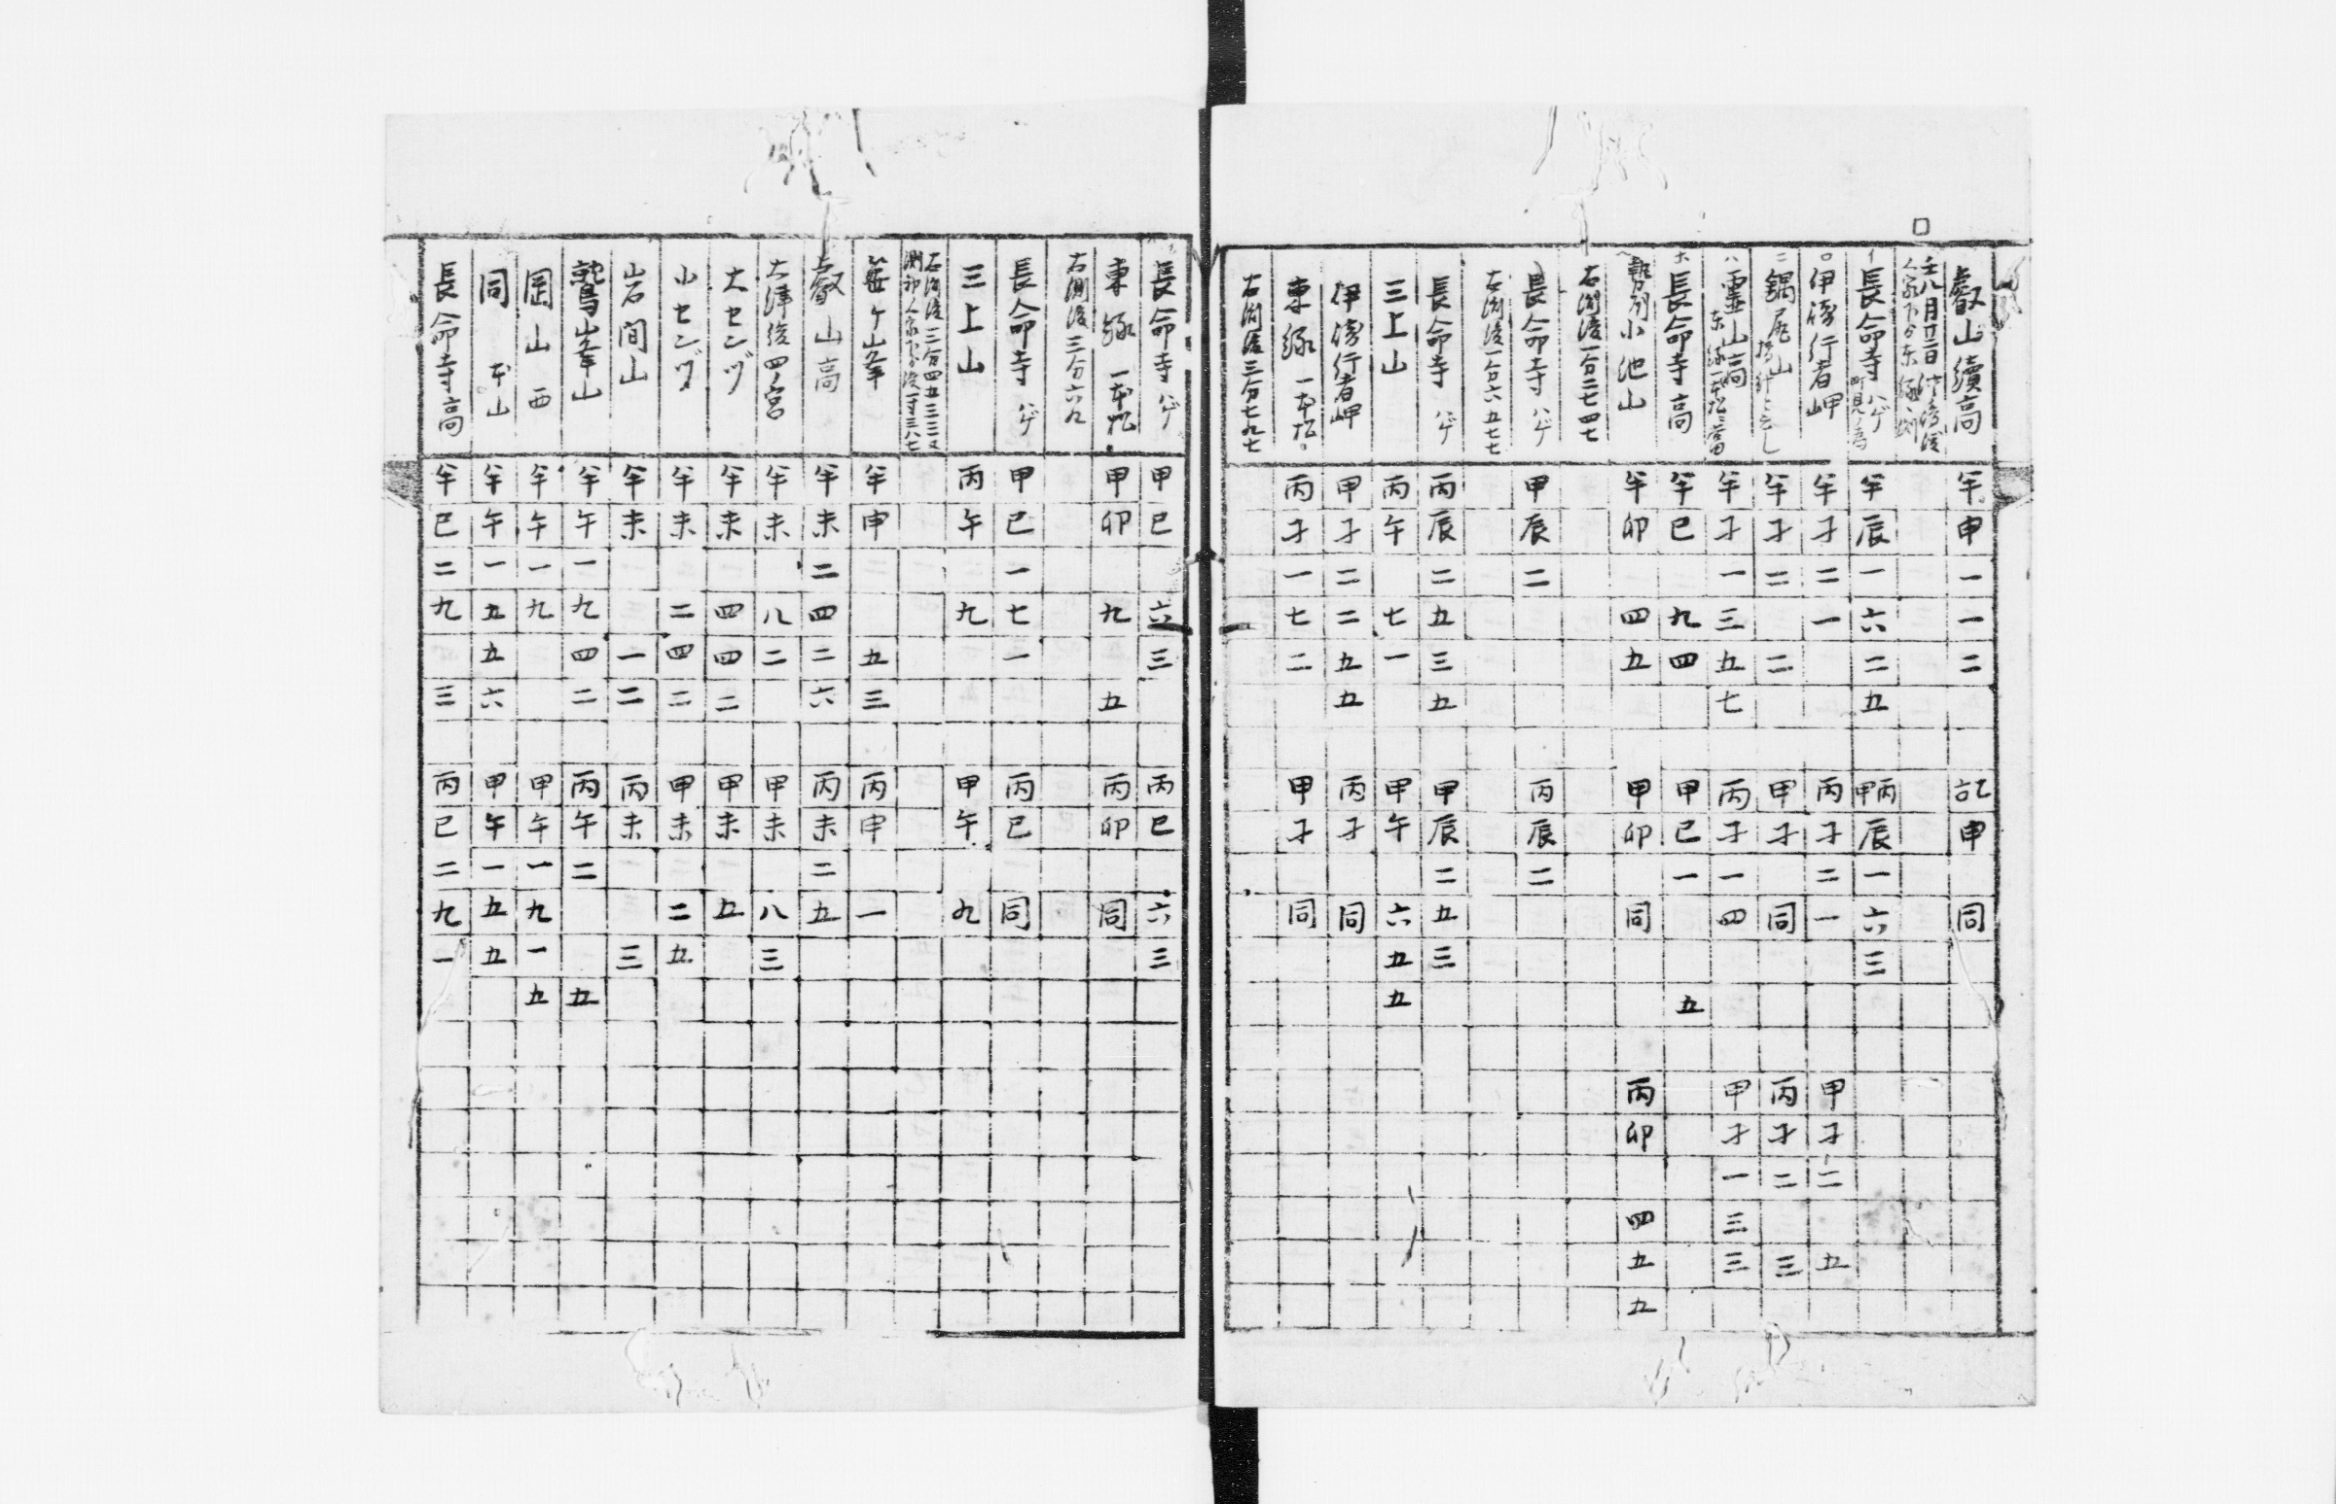 叡山續高 半申一一二 記申同
壬八月廿二日
長命寺 ハゲ 半辰一六二五 甲丙辰一六三
伊﨑行者岬 半子二一 丙子二一 甲子二五
鍋尾山 半子二二 甲子同 丙子二三
霊山高 半子一三五七 丙子一四 甲子一三三
長命寺高 半巳九四 甲巳一五
小池山 半卯四五 甲卯同 丙卯四五五
右測後一合二七四七
長命寺 ハゲ 甲辰二 丙辰二
右測後一合六五七七
長命寺 ハゲ 丙辰二五三五 甲辰二五三
三上山 丙午七一 甲午六五五
伊﨑行者岬 甲子二二五五 丙子同
東縁 一本松 丙子一七二 甲子同
右測後三分七九七
長命寺 ハゲ 甲巳六三 丙巳六三
東縁 一本松 甲卯九五 丙卯同
右測後三分六九
長命寺 ハゲ 甲巳一七一 丙巳同
三上山 丙午九 甲午九
右測後三分四五三三
笹ケ山峯 半申五三 丙申一
叡山高 半未二四二六 丙未二五
大津後四ノ宮 半未八二 甲未八三
大センヅ 半未四四二 甲未五
小センヅ 半未二四二 甲未二五
岩間山 半未一二 丙未三
鷲峯山 半午一九四二 丙午二五
岡山西 半午一九 甲午一九一五
同 本山 半午一五五六 甲午一五五
長命寺高 半巳二九三 丙巳二九一